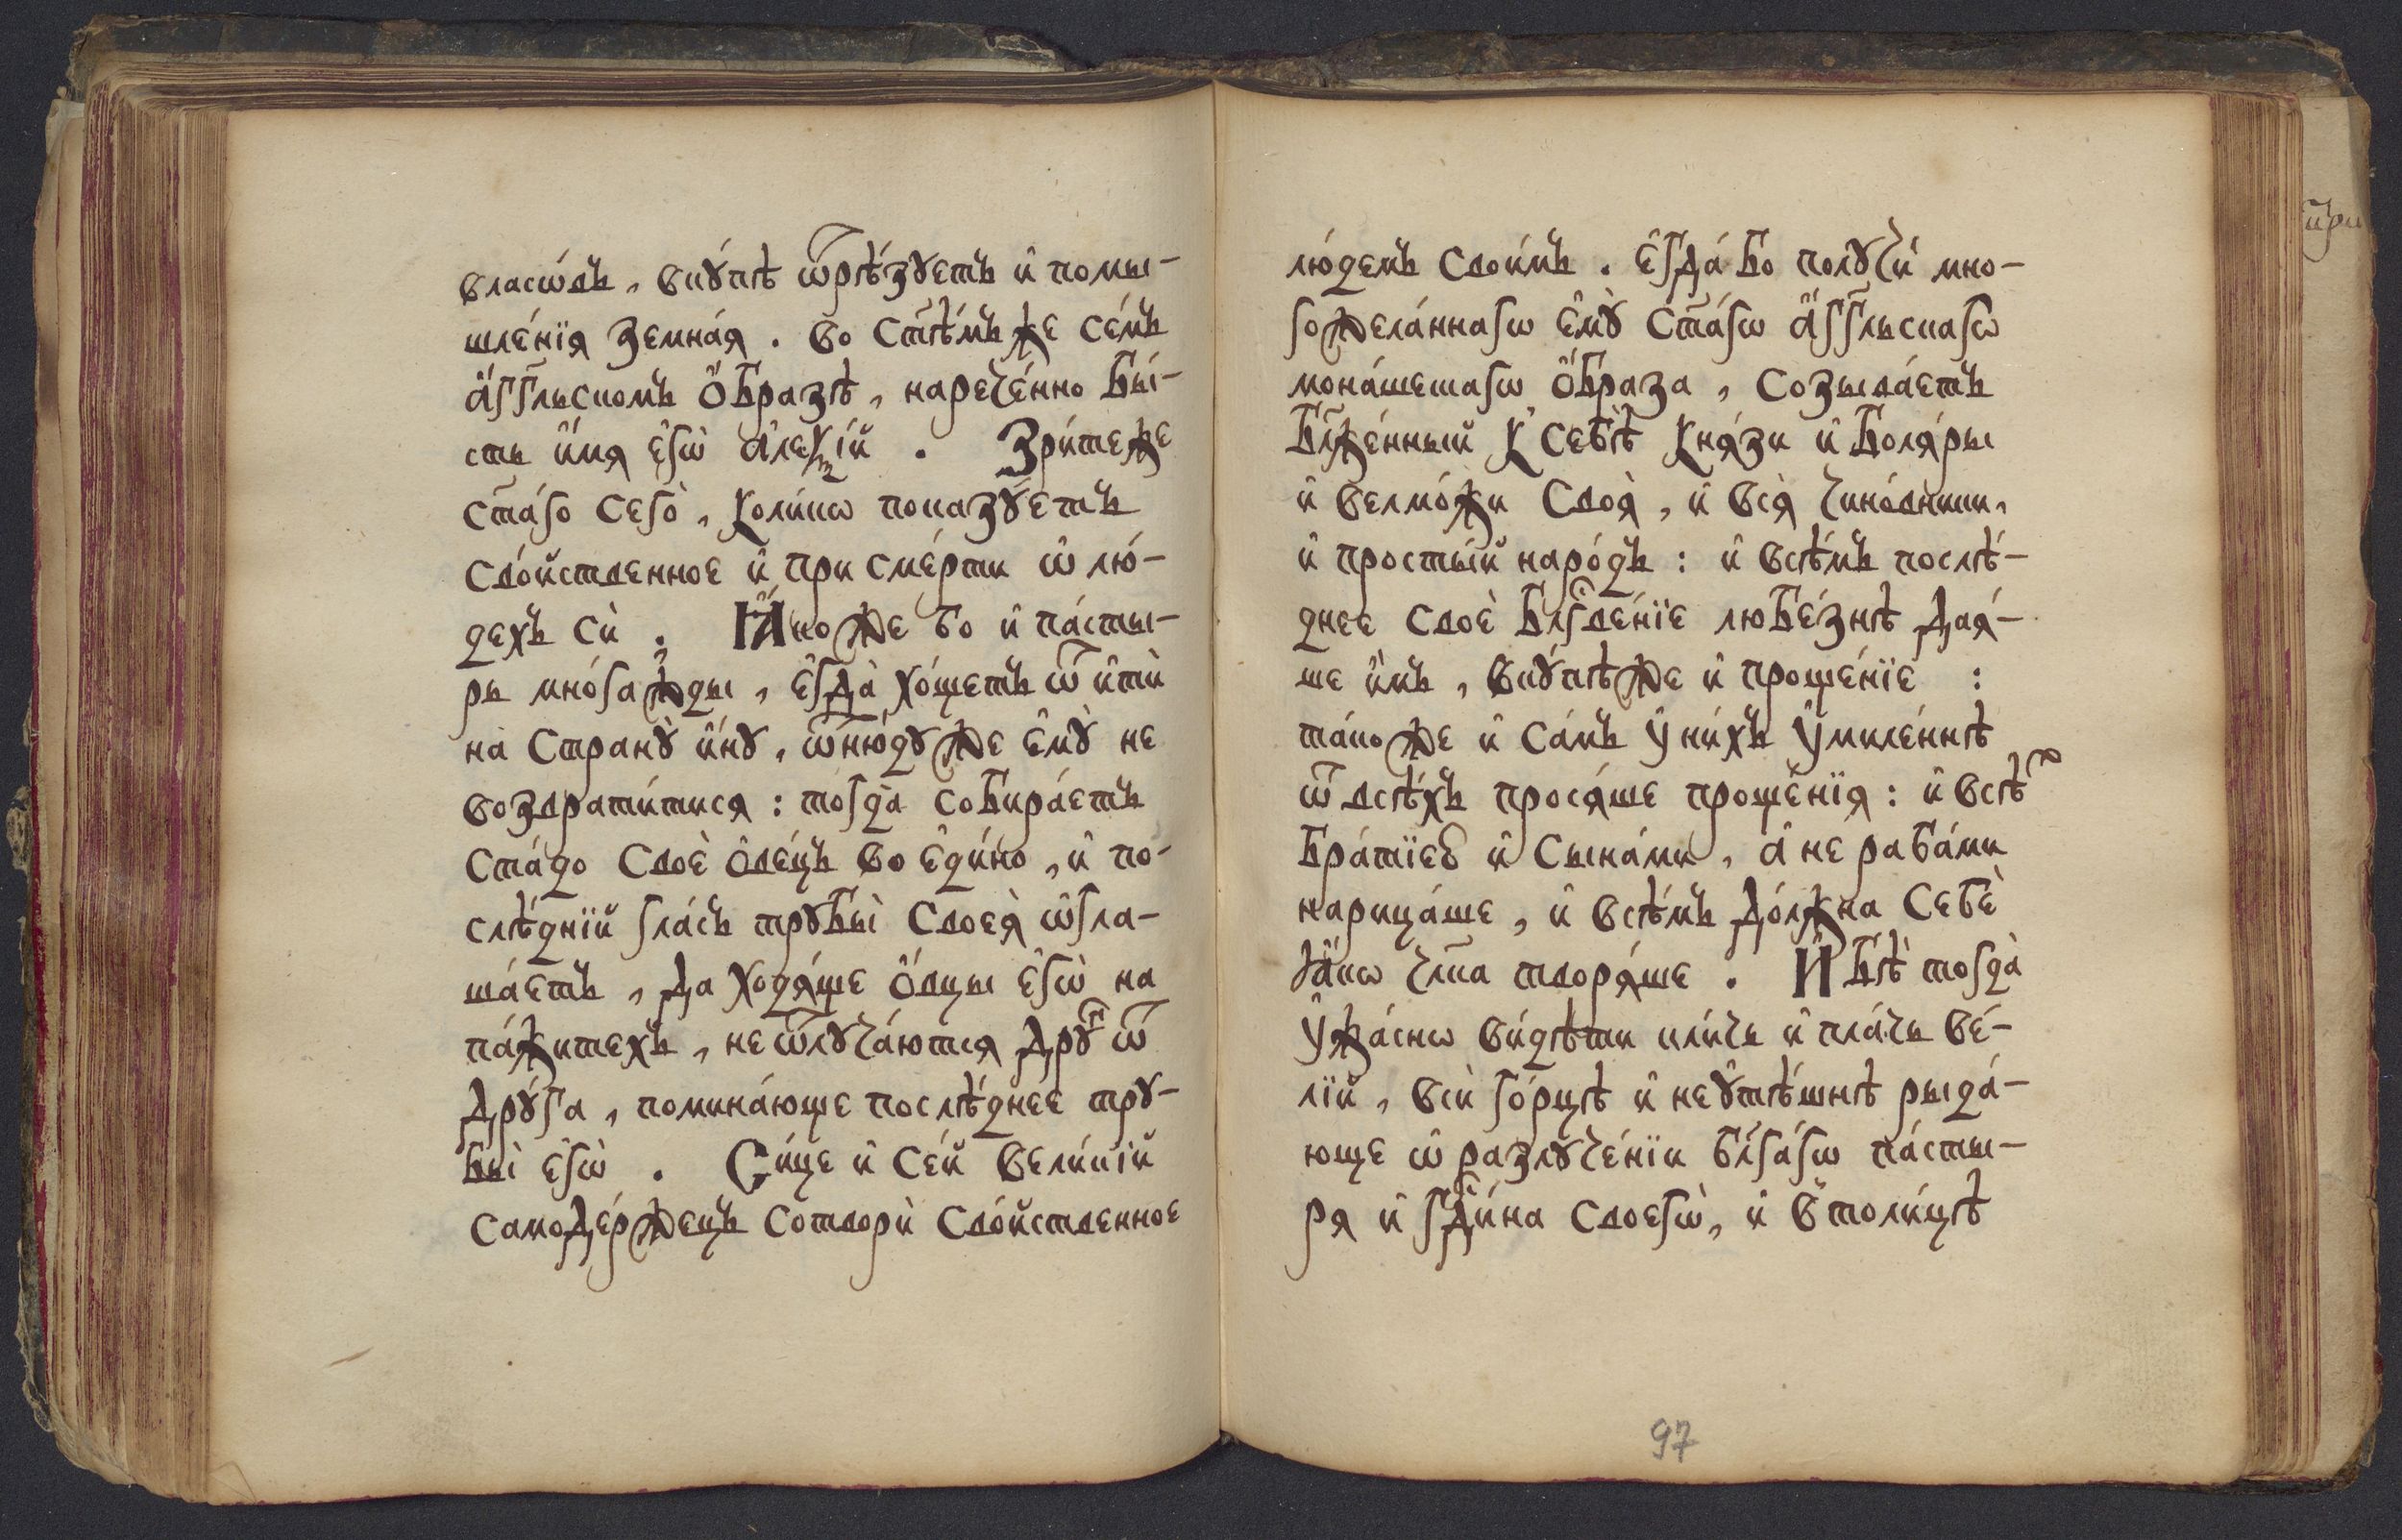 власѡ́въ, вкꙋ́пѣ ѿрѣ́зꙋетъ и҆ помы-
шле́нїѧ земна́ѧ. во ст҃ѣ́мъ же се́мъ
а҆́гг҃льскомъ ѻ҆́бразѣ, нарече́нно бы́-
сть и҆́мѧ є҆гѡ̀ а҆леѯі́й. Зри́теже
ст҃а́го сего̀, коли́кѡ показꙋ́етъ
сво́йственное и҆ при сме́рти ѡ҆ лю́-
дехъ сѝ. Ꙗ҆́коже бо и҆ па́сты-
рь мно́гажды, є҆гда̀ хо́щетъ ѿ и҆тѝ
на странꙋ̀ и҆́нꙋ, ѿню́дꙋже є҆мꙋ̀ не
возврати́тисѧ: тогда̀ собира́етъ
ста́до своѐ ѻ҆ве́цъ во є҆ди́но, и҆ по-
слѣ́днїй гла́съ трꙋбы̀ своеѧ̀ ѡ҆гла-
ша́етъ, да ходѧ́ще ѻ҆́вцы є҆гѡ̀ на
па́житехъ, не ѿлꙋча́ютсѧ дрꙋг ѿ
дрꙋ́га, помина́юще послѣ́днее трꙋ-
бы̀ є҆гѡ̀. Си́це и҆ се́й вели́кїй
самоде́ржецъ сотворѝ сво́йственное
лю́демъ свои́мъ. є҆гда́ бо полꙋчѝ мно-
гожела́ннагѡ є҆мꙋ̀ ст҃а́гѡ а҆́гг҃льскагѡ
мона́шетагѡ ѻ҆́браза, созыва́етъ
бл҃же́нный к̾ себѣ̀ кнѧ́зи и҆ болѧ́ры
и҆ велмо́жи своѧ̀, и҆ всѧ̀ чино́вники,
и҆ просты́й наро́дъ: и҆ всѣ́мъ послѣ́-
днее своѐ блг҃ве́нїе любе́знѣ даѧ́-
ше и҆̀мъ, вкꙋ́пѣже и҆ проще́нїе:
та́коже и҆ са́мъ у҆ ни́хъ у҆миле́ннѣ
ѿ всѣ́хъ просѧ́ше проще́нїѧ: и҆ всѣ́х
бра́тїею и҆ сына́ми, а҆ не раба́ми
нарица́ше, и҆ всѣ́мъ до́лжна себѐ
ꙗ҆́кѡ чл҃ка творѧ́ше. И҆ бѣ̀ тогда̀
у҆жа́снѡ ви́дѣти кли́чь и҆ пла́чь ве́-
лїй, всѝ го́рцѣ и҆ неꙋтѣ́шнѣ рыда́-
юще ѡ҆ разлꙋче́нїи бл҃га́гѡ па́сты-
рѧ и҆ гд҇и́на своегѡ̀, и҆ в̾толи́цѣ
97